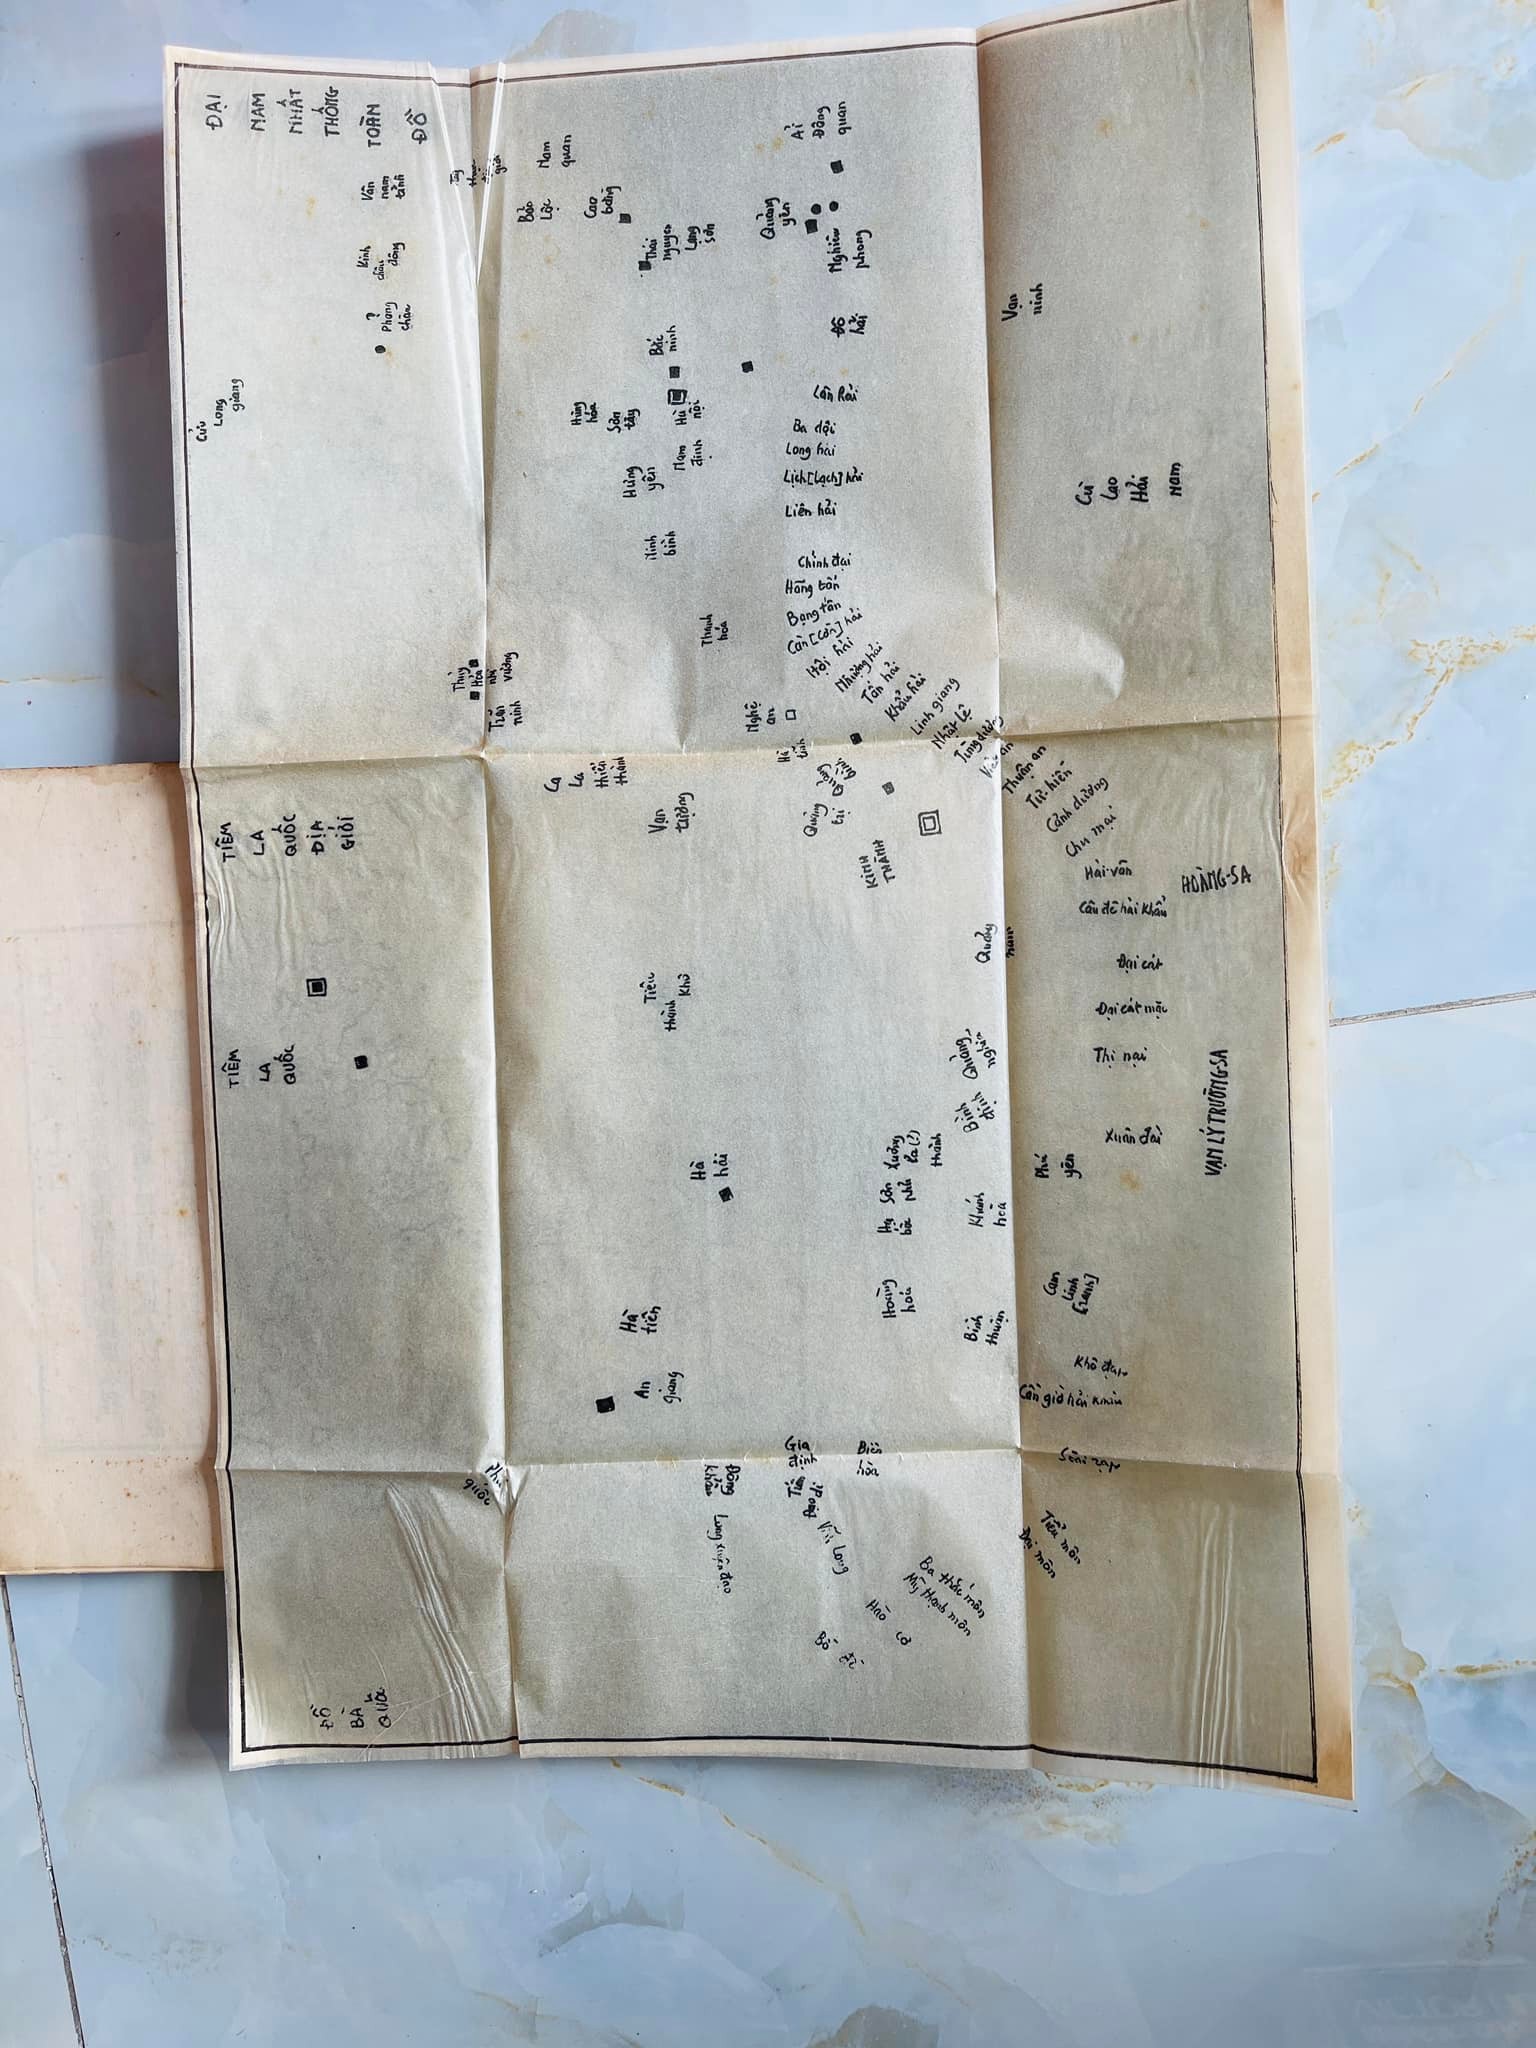 ĐẠI
NAM
NHẤT
THỐNG
TOÀN
ĐỒ
Vân
nam
tỉnh
Kinh
châu
đông
?
Phong
châu
Cửu
Long
giang
Nam
quan
Bảo
Lộc
Cao
bằng
Thái
nguyên
Lạng
sơn
Ải
Đông
quan
Quảng
yên
Nghiêu
phong
Đồ
hải
Vạn
ninh
Bắc
ninh
Hà
nội
Hưng
hóa
Sơn
tây
Nam
định
Hưng
yên
Ninh
bình
Thanh
hóa
Lân Hải
Ba dội
Long hải
Lịch [Lạch] hải
Liên hải
Chính đại
Hàng tấn
Bạng tấn
Càn [Cờn] hải
Hội hải
Nhượng hải
Tấn hải
Khẩu hải
Linh giang
Nhật lệ
Tùng dương
Việt an
Thuận an
Tư hiền
Cảnh dương
Chu mại
Hải vân
Câu đê hải khẩu
Đại cát
Thị nại
Xuân đài
Cù
lao
Hải
Nam
HOÀNG-SA
VẠN LÝ TRƯỜNG-SA
Trấn
ninh
Nghệ
an
Hà
tĩnh
Quảng
bình
Quảng
trị
KINH
THÀNH
Quảng
nam
Quảng
nghĩa
Bình
định
Phú
yên
Khánh
hòa
Bình
thuận
La
La
thiên
thành
Vạn
tượng
TIÊM
LA
QUỐC
ĐỊA
GIỚI
TIÊM
LA
QUỐC
Tiêu
thành
Khû
Hà
hải
Xương
La (?)
thành
Sơn
phủ
Hạ
bôc
Hoàng
hóa
Cam
Linh
[ranh]
Cần giờ hải khẩu
Hà
tiên
An
giang
Phú
quốc
Gia
định
Biên
hòa
Tiểu môn
Đại môn
Long xuyên đạo
Vĩnh Long
Ba thắc môn
Mỹ thạnh môn
ĐỒ
BÀ
QUỐC